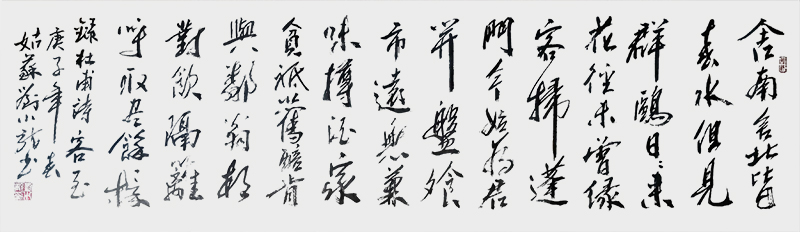 舍南舍北皆
春水但見
群鷗日々來
花徑未曾緣
客掃蓬
門今始為君
开盤飧
市遠無兼
味樽酒家
貧祇舊醅肯
與鄰翁相
對飲隔籬
呼取盡餘杯
錄杜甫詩客至
庚子年春
姑蘇劉小龍書